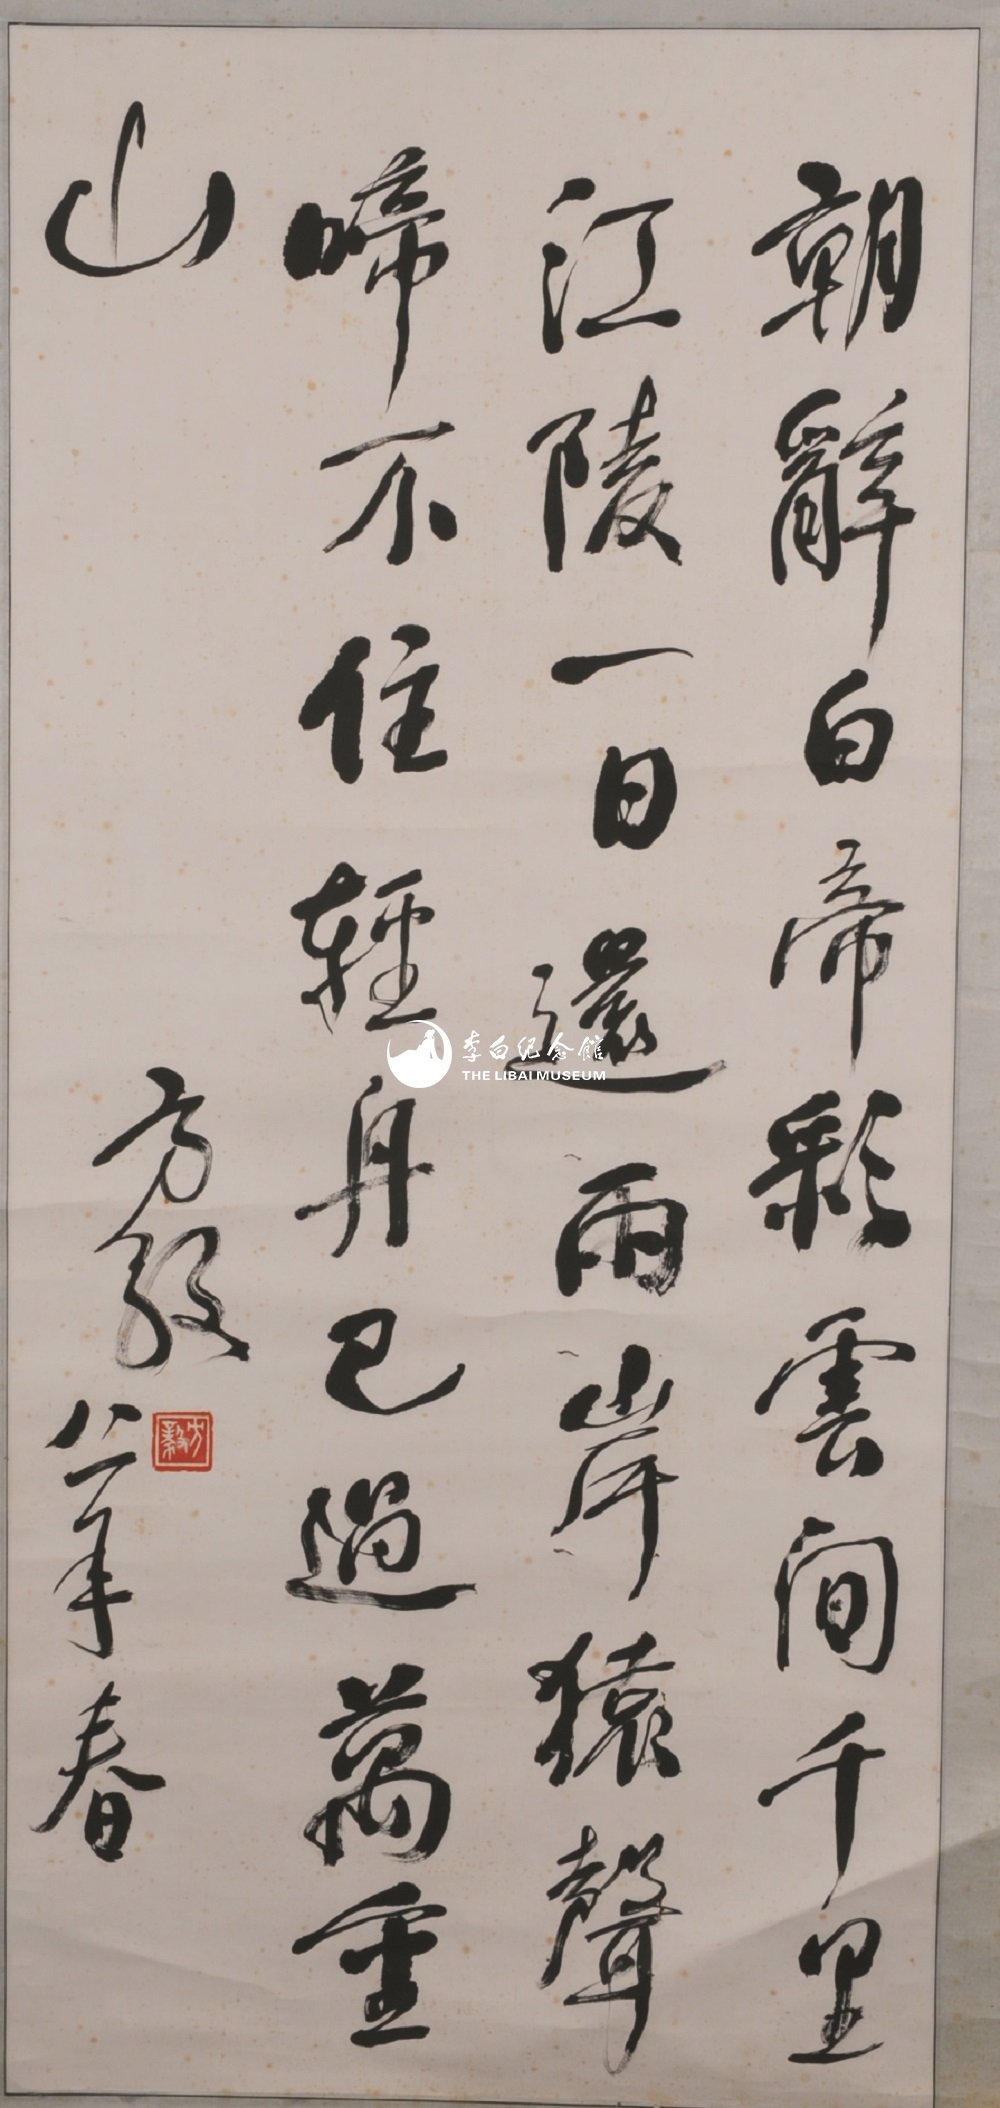 朝辭白帝彩雲間千里
江陵一日還兩岸猿聲
啼不住輕舟已過萬重
山
方毅
八一年春
方毅
李白纪念馆
THE LIBAI MUSEUM